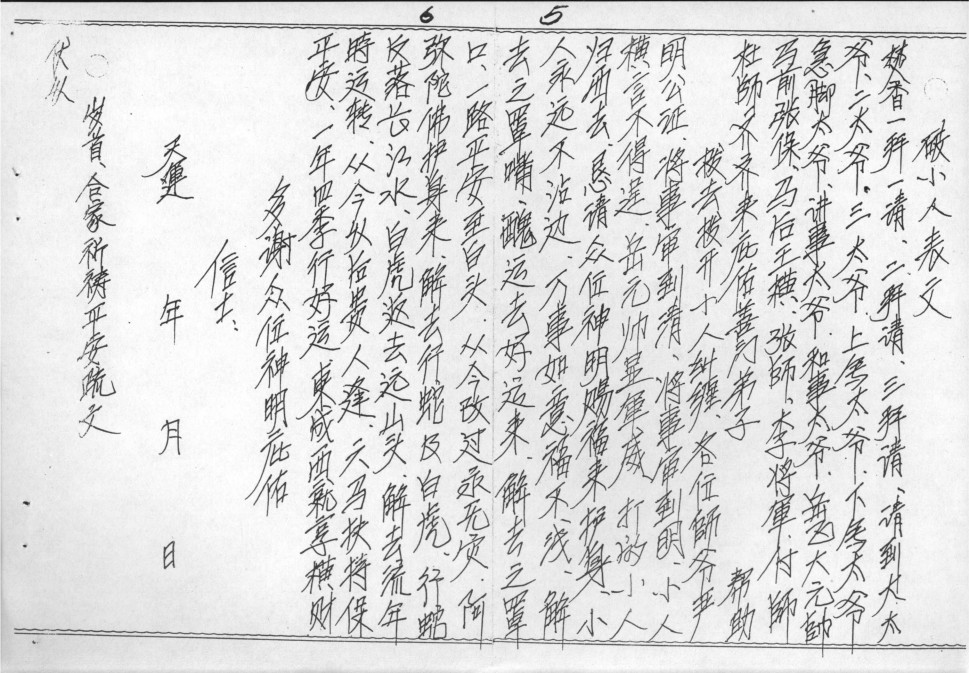 5
6
破小人表文
焚香一拜一请、二拜请、三拜请、请到大太
爷、二太爷、三太爷、上房太爷、下房太爷
急脚太爷、讲事太爷、和事太爷、岳飞大元帥
马前張保、马后王横、張師、李将軍、付師
杜師、齐齐来庇佑善男弟子 帮助
拨去拨开小人纠缠、各位師爷严
明公证、将事軍到清、将事軍到明、小人
横言不得逞、岳元帅显軍威 打的小人
归西去、恳请众位神明赐福来护身、小
人永远不沾边、万事如意福不浅、解
去之罩嘴、醜运去好运来、解去之罩
口、一路平安至白头、从今改过永无灾、阿
弥陀佛护身来、解去行蛇及白虎、行蛇
反落长江水、白虎返去远山头、解去流年
時运转、从今以后贵人逢、六马扶持保
平安、一年四季行好运、東成西就享横财
多谢众位神明庇佑
信士、
天運 年 月 日
岁首、合家祈祷平安疏文
伏以